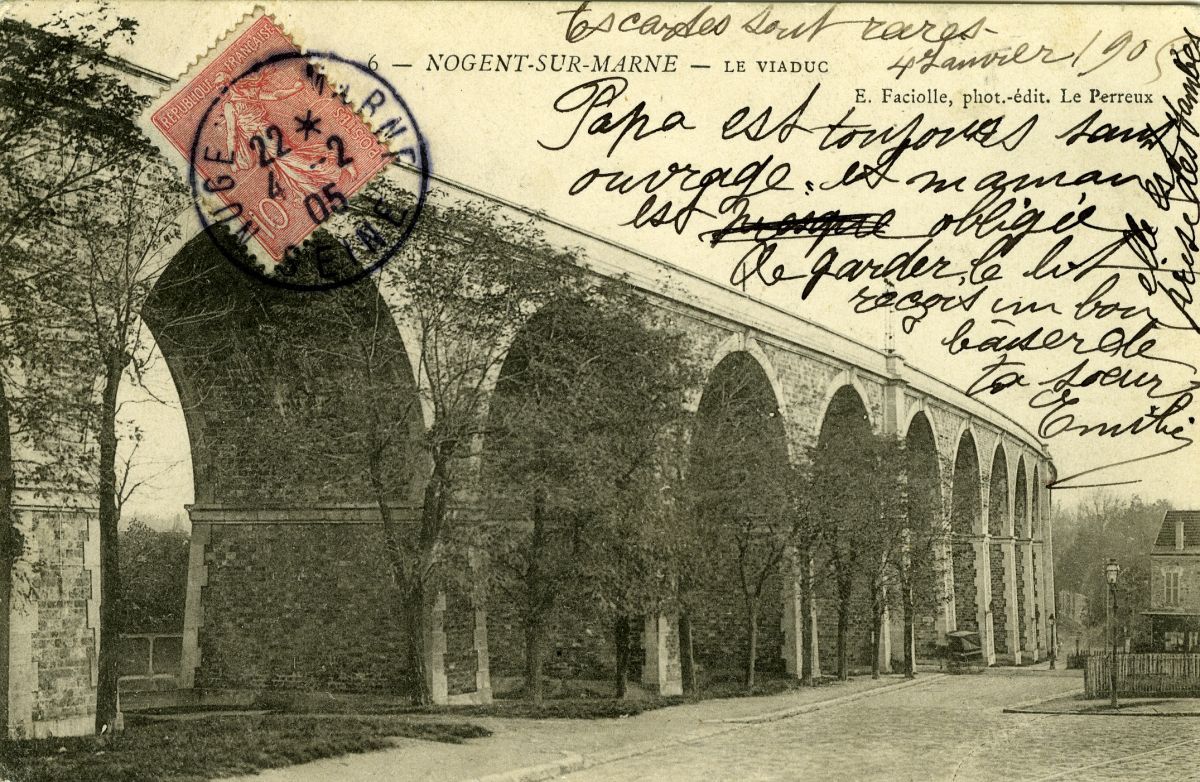 Tes cartes sont rares.
4 Janvier 1905
6 — NOGENT-SUR-MARNE — LE VIADUC
E. Faciolle, phot.-édit. Le Perreux
Papa est toujours sans
ouvrage, et maman
est presque obligée
de garder le lit
elle est
prise des jambes
reçois un bon
baiser de
ta sœur
Emilie
RÉPUBLIQUE FRANÇAISE
POSTES
10
NOGENT MARNE
22 * -2
4 05
SEINE